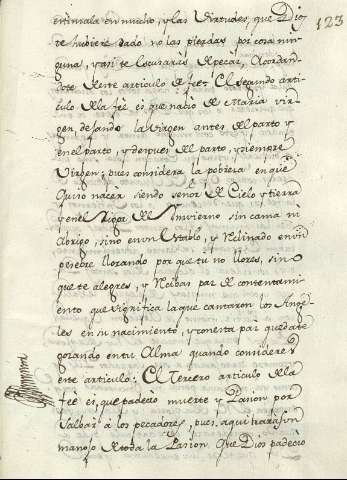 123
entimala en mucho, y las Virtudes, que Dios
te hubiere dado no las pierdas por cosa nin
guna, y asi te escusaras de pecar, Acordan-
dote deste articulo de fee: El segundo arti-
culo de la fee es que nacio de Maria vir-
gen dejando la Virgen antes del parto y
en el parto, y despues del parto, y siempre
Virgen; pues considera la pobreza en que
quiso nacer siendo señor de Cielo y tierra
y en el Rigor del Imvierno sin cama ni
Abrigo, sino en vn establo, y Reclinado en vn
pesebre llorando por que tu no llores, sino
que te alegres, y Recibas paz de contentami
ento que significa la que cantaron los Ange-
les en su nacimiento, y con esta paz quedate
gozando en tu Alma quando consideres
este articulo: El Tercero articulo de la
fee es, que padecio muerte y Pasion por
salbar à los pecadores, pues, aqui traras en
manojo Rtoda la Pasion que Dios padecio